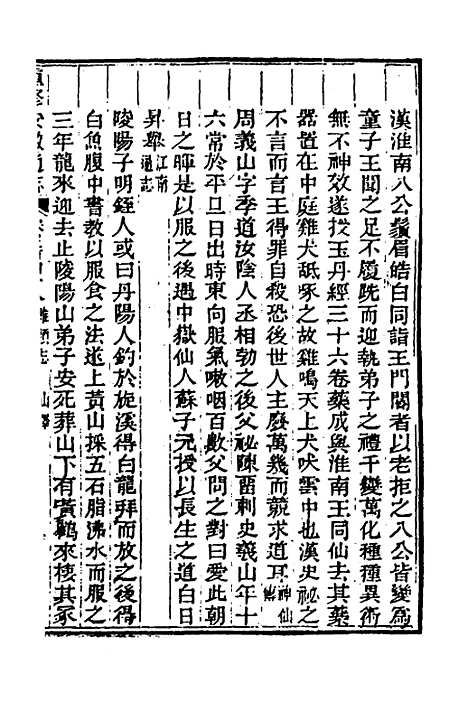 漢淮南八公鬚眉皓白同詣王門閽者以老拒之八公皆變爲
童子王聞之足不履跣而迎執弟子之禮千變萬化種種異術
無不神效遂授玉丹經三十六卷藥成與淮南王同仙去其藥
器置在中庭雞犬舐啄之故雞鳴天上犬吠雲中也漢史祕之
不言而言王得罪自殺恐後世人主廢萬幾而競求道耳神仙傳
周義山字季道汝陰人丞相勃之後父祕陳畱刺史義山年十
六常於平旦日出時東向服氣嗽咽百數父問之對曰愛此朝
日之暉是以服之後遇中嶽仙人蘇子元授以長生之道白日
昇舉江南通志
陵陽子明銍人或曰丹陽人釣於旋溪得白龍拜而放之後得
白魚腹中書教以服食之法遂上黃山採五石脂沸水而服之
三年龍來迎去止陵陽山弟子安死葬山下有黃鶴來棲其冢